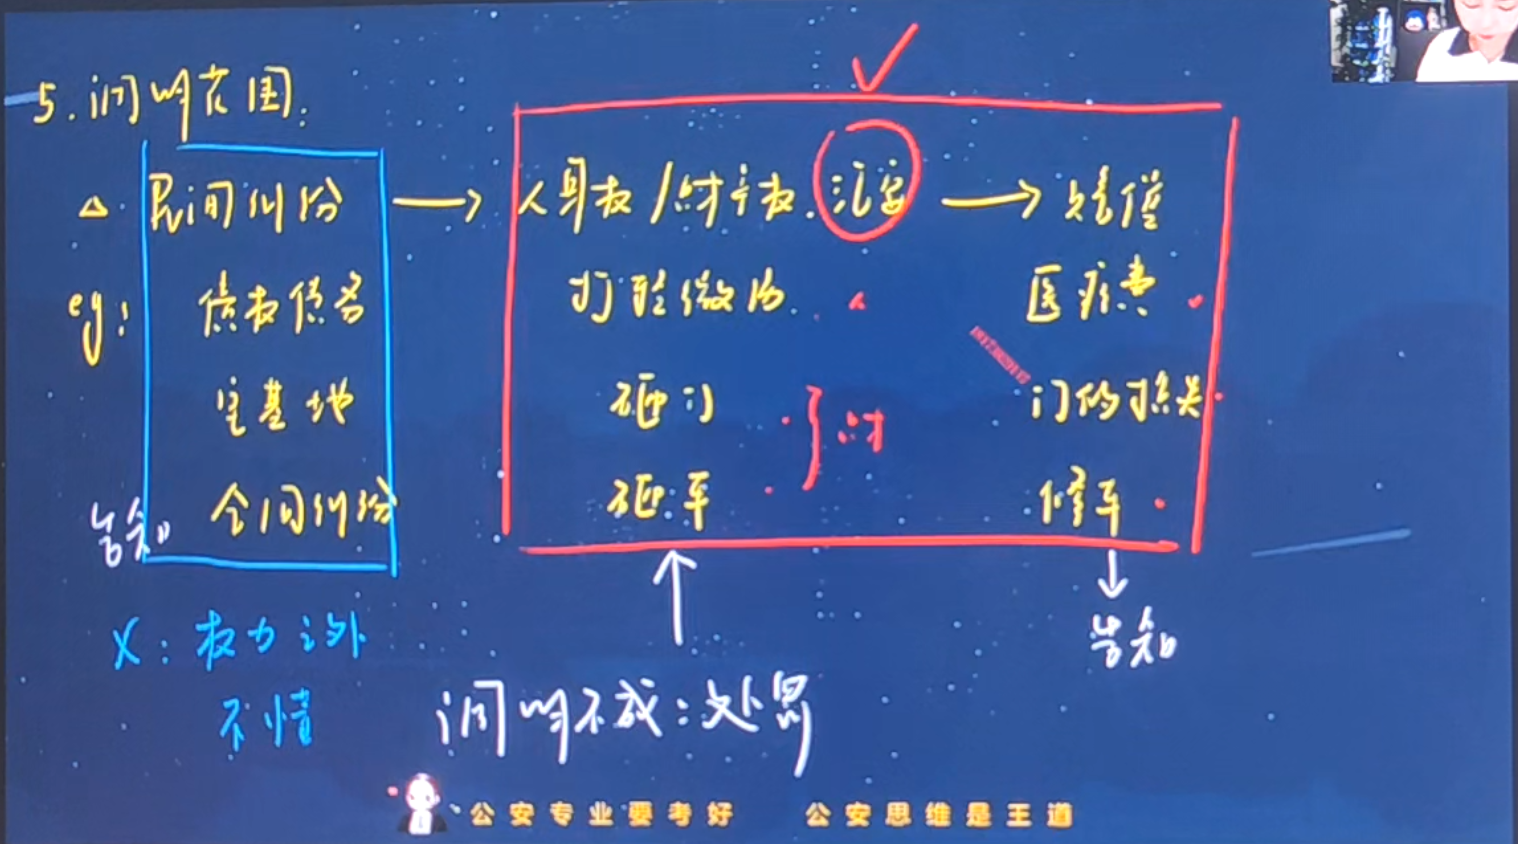 5.调解范围:
△ 民间纠纷 → 人身权/财产权.治安 → 赔偿
eg: 债权债务 打轻微伤. 医疗费
宅基地 砸门 }财 门的损失
告知 合同纠纷 砸车 修车
X:权力之外 告知
不情 调解不成:处罚
公安专业要考好 公安思维是王道